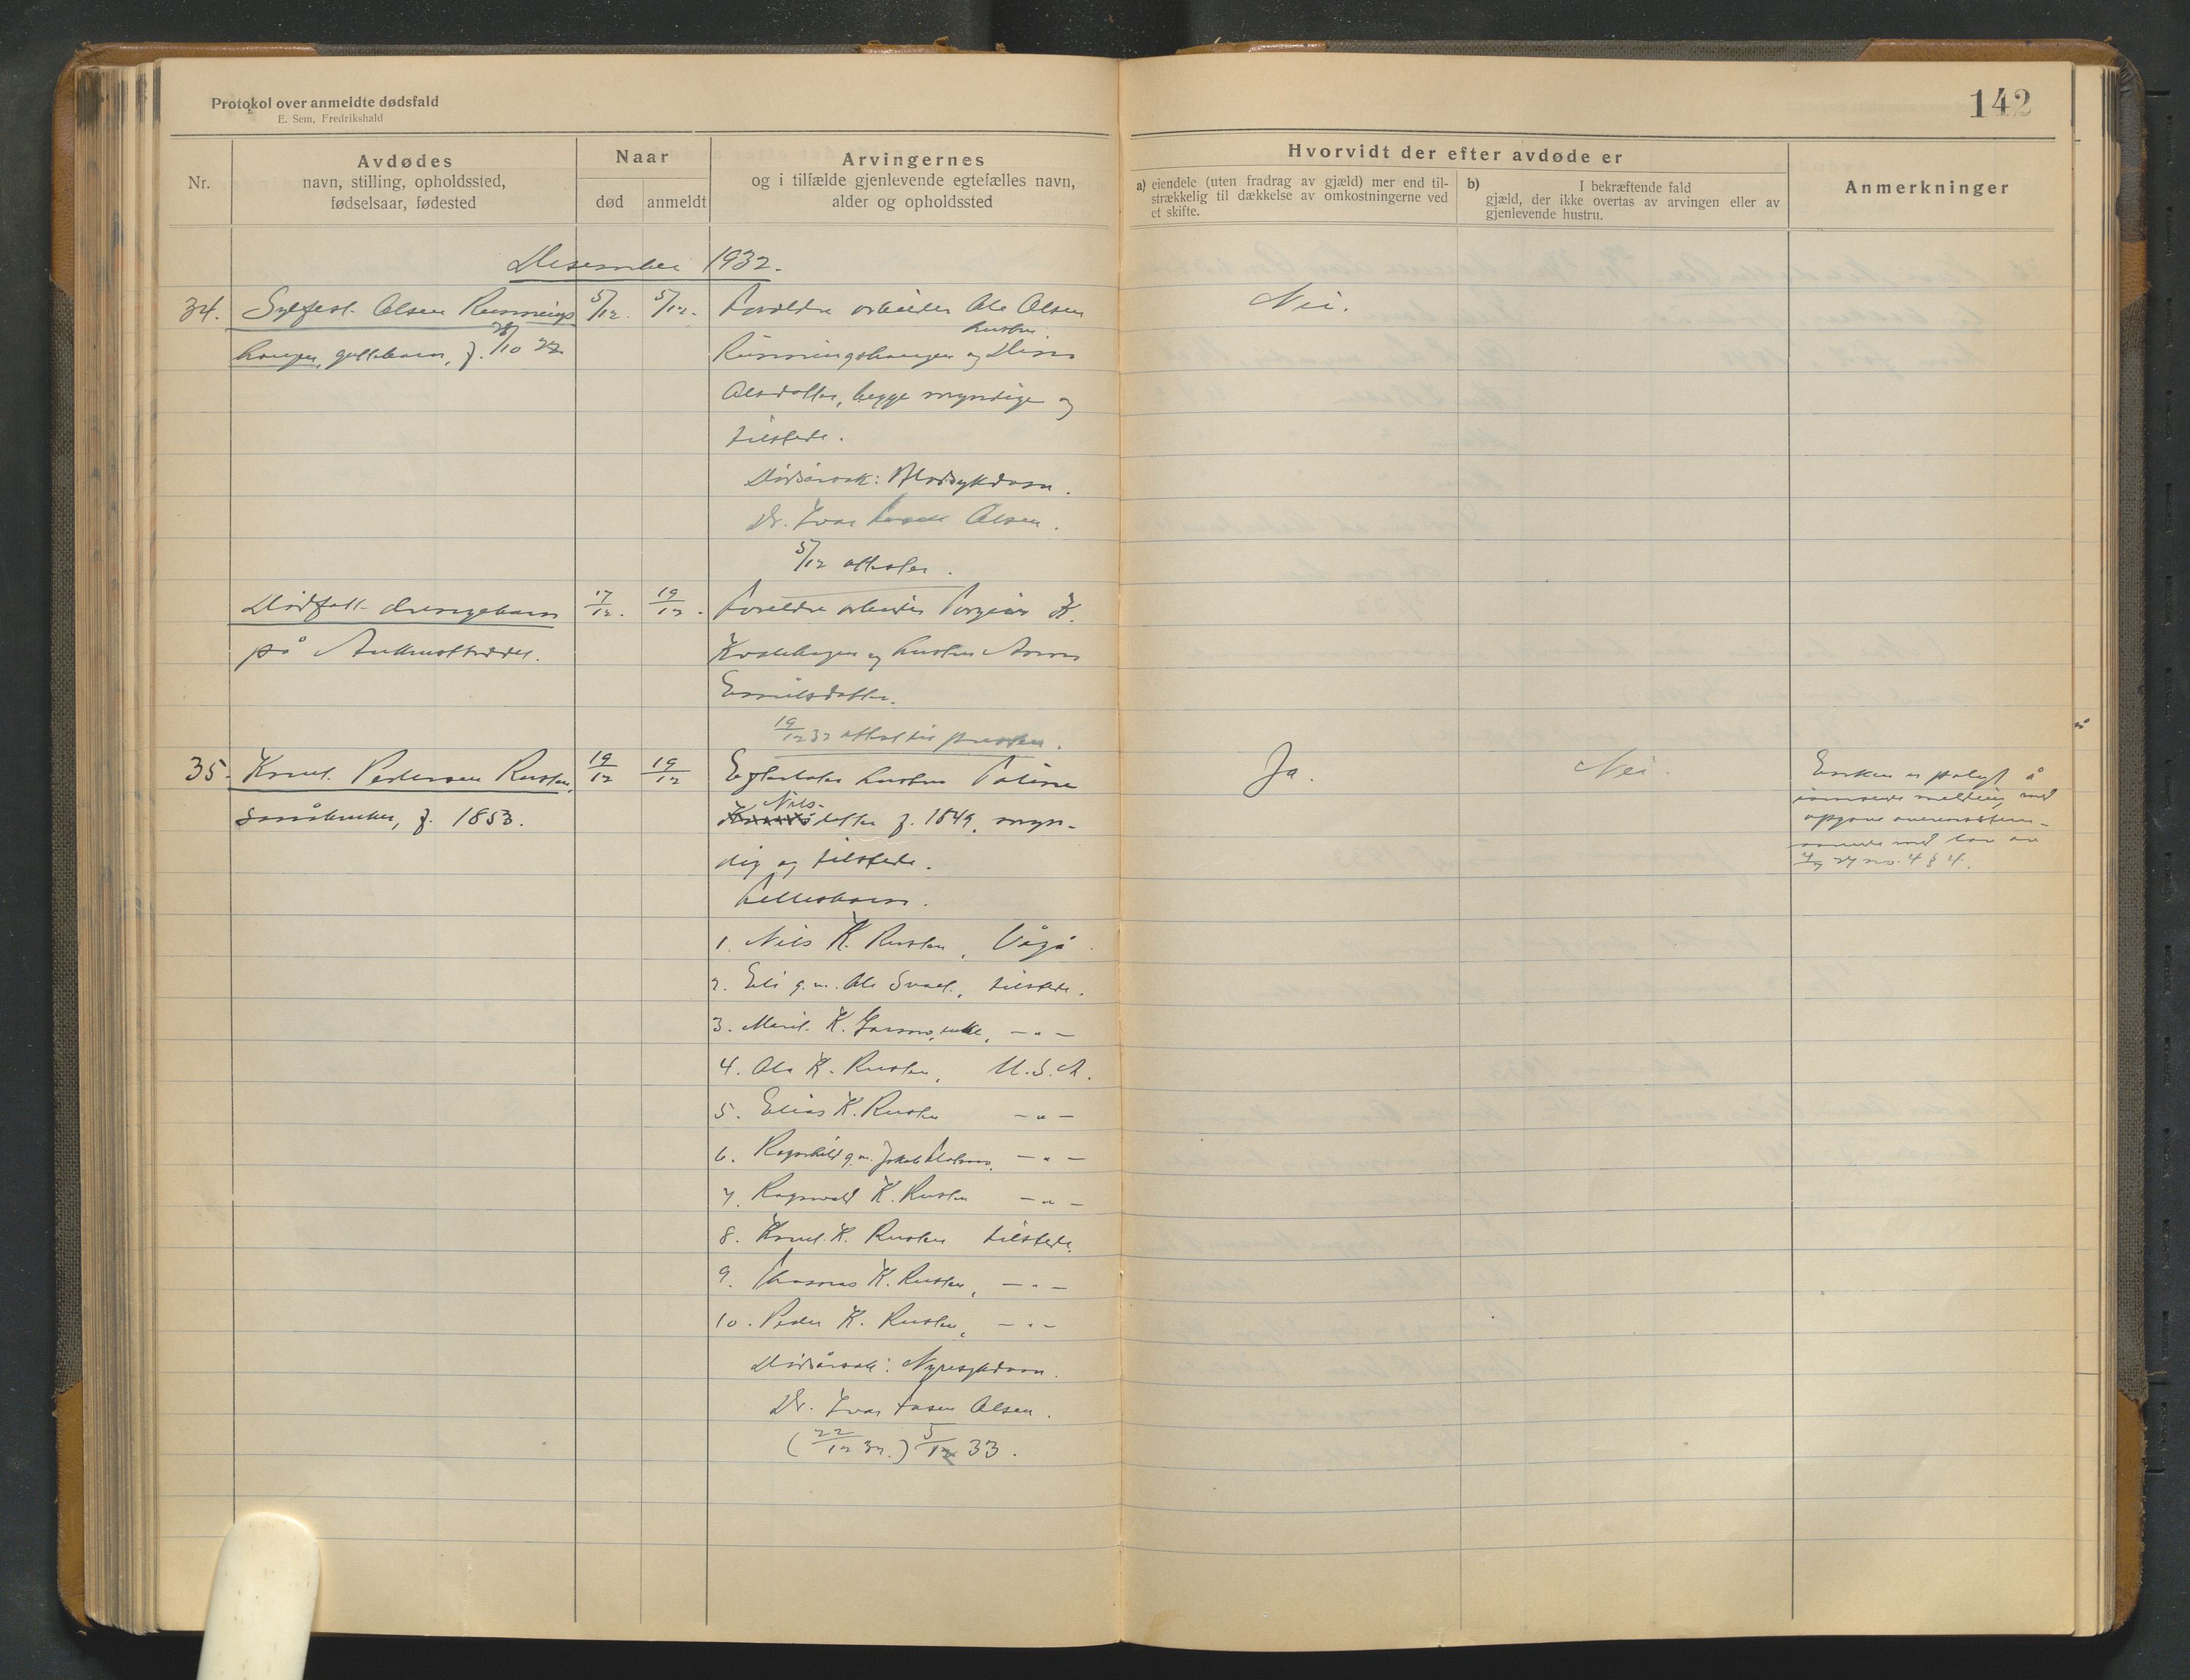 Protokol over anmeldte dødsfald
E. Sem, Fredrikshald
142
Nr.
Avdødes
navn, stilling, opholdssted,
fødselsaar, fødested
Naar
død
anmeldt
Arvingernes
og i tilfælde gjenlevende egtefælles navn,
alder og opholdssted
Hvorvidt der efter avdøde er
a) eiendele (uten fradrag av gjæld) mer end til-
strækkelig til dækkelse av omkostningerne ved
et skifte.
b) I bekræftende fald
gjæld, der ikke overtas av arvingen eller av
gjenlevende hustru.
Anmerkninger
Desember 1932.
34. Sylfest Olsen Rusnings 5/12. 5/12. Foreldre arbeider Ole Olsen Nei.
haugen, guttebarn, f. /10 hustru
Rusningshaugen og
Olsdatter, begge myndige og
tilstede.
Dødsårsak: Blodsykdom.
Dr. Ivar Olsen.
5/12 attester.
Dødfødt drengebarn 17/12. 19/12. Foreldre arbeider Torgeir K.
på og hustru Anna
Emilsdatter.
19/12 32 attest fra presten.
35. Knut Pedersen Rusten, 19/12 19/12 Efterlater hustru Ja. Nei.
småbruker, f. 1853. Nils-
datter f. 1849, myn-
dig og tilstede.
Fellesbarn.
1. Nils K. Rusten, Vågå.
2. Eli g.m. Ole tilstede.
3. Marit K. enke, -"-
4. Ole K. Rusten, U.S.A.
5. Elias K. Rusten -"-
6. Ragnhild g.m. Jakob -"-
7. Ragnvald K. Rusten -"-
8. Knut K. Rusten tilstede.
9. Thomas K. Rusten, -"-
10. Peder K. Rusten, -"-
Dødsårsak: Nyresykdom.
Dr. Ivar Olsen.
(22/12 32.) 5/1 33.
Enken er pålagt å
innsende melding med
opgave overensstem-
mende med lov av
no. 4 § 4.